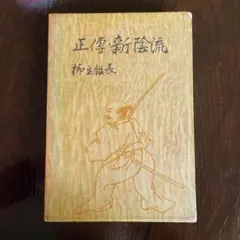 正傳新陰流
柳生厳長